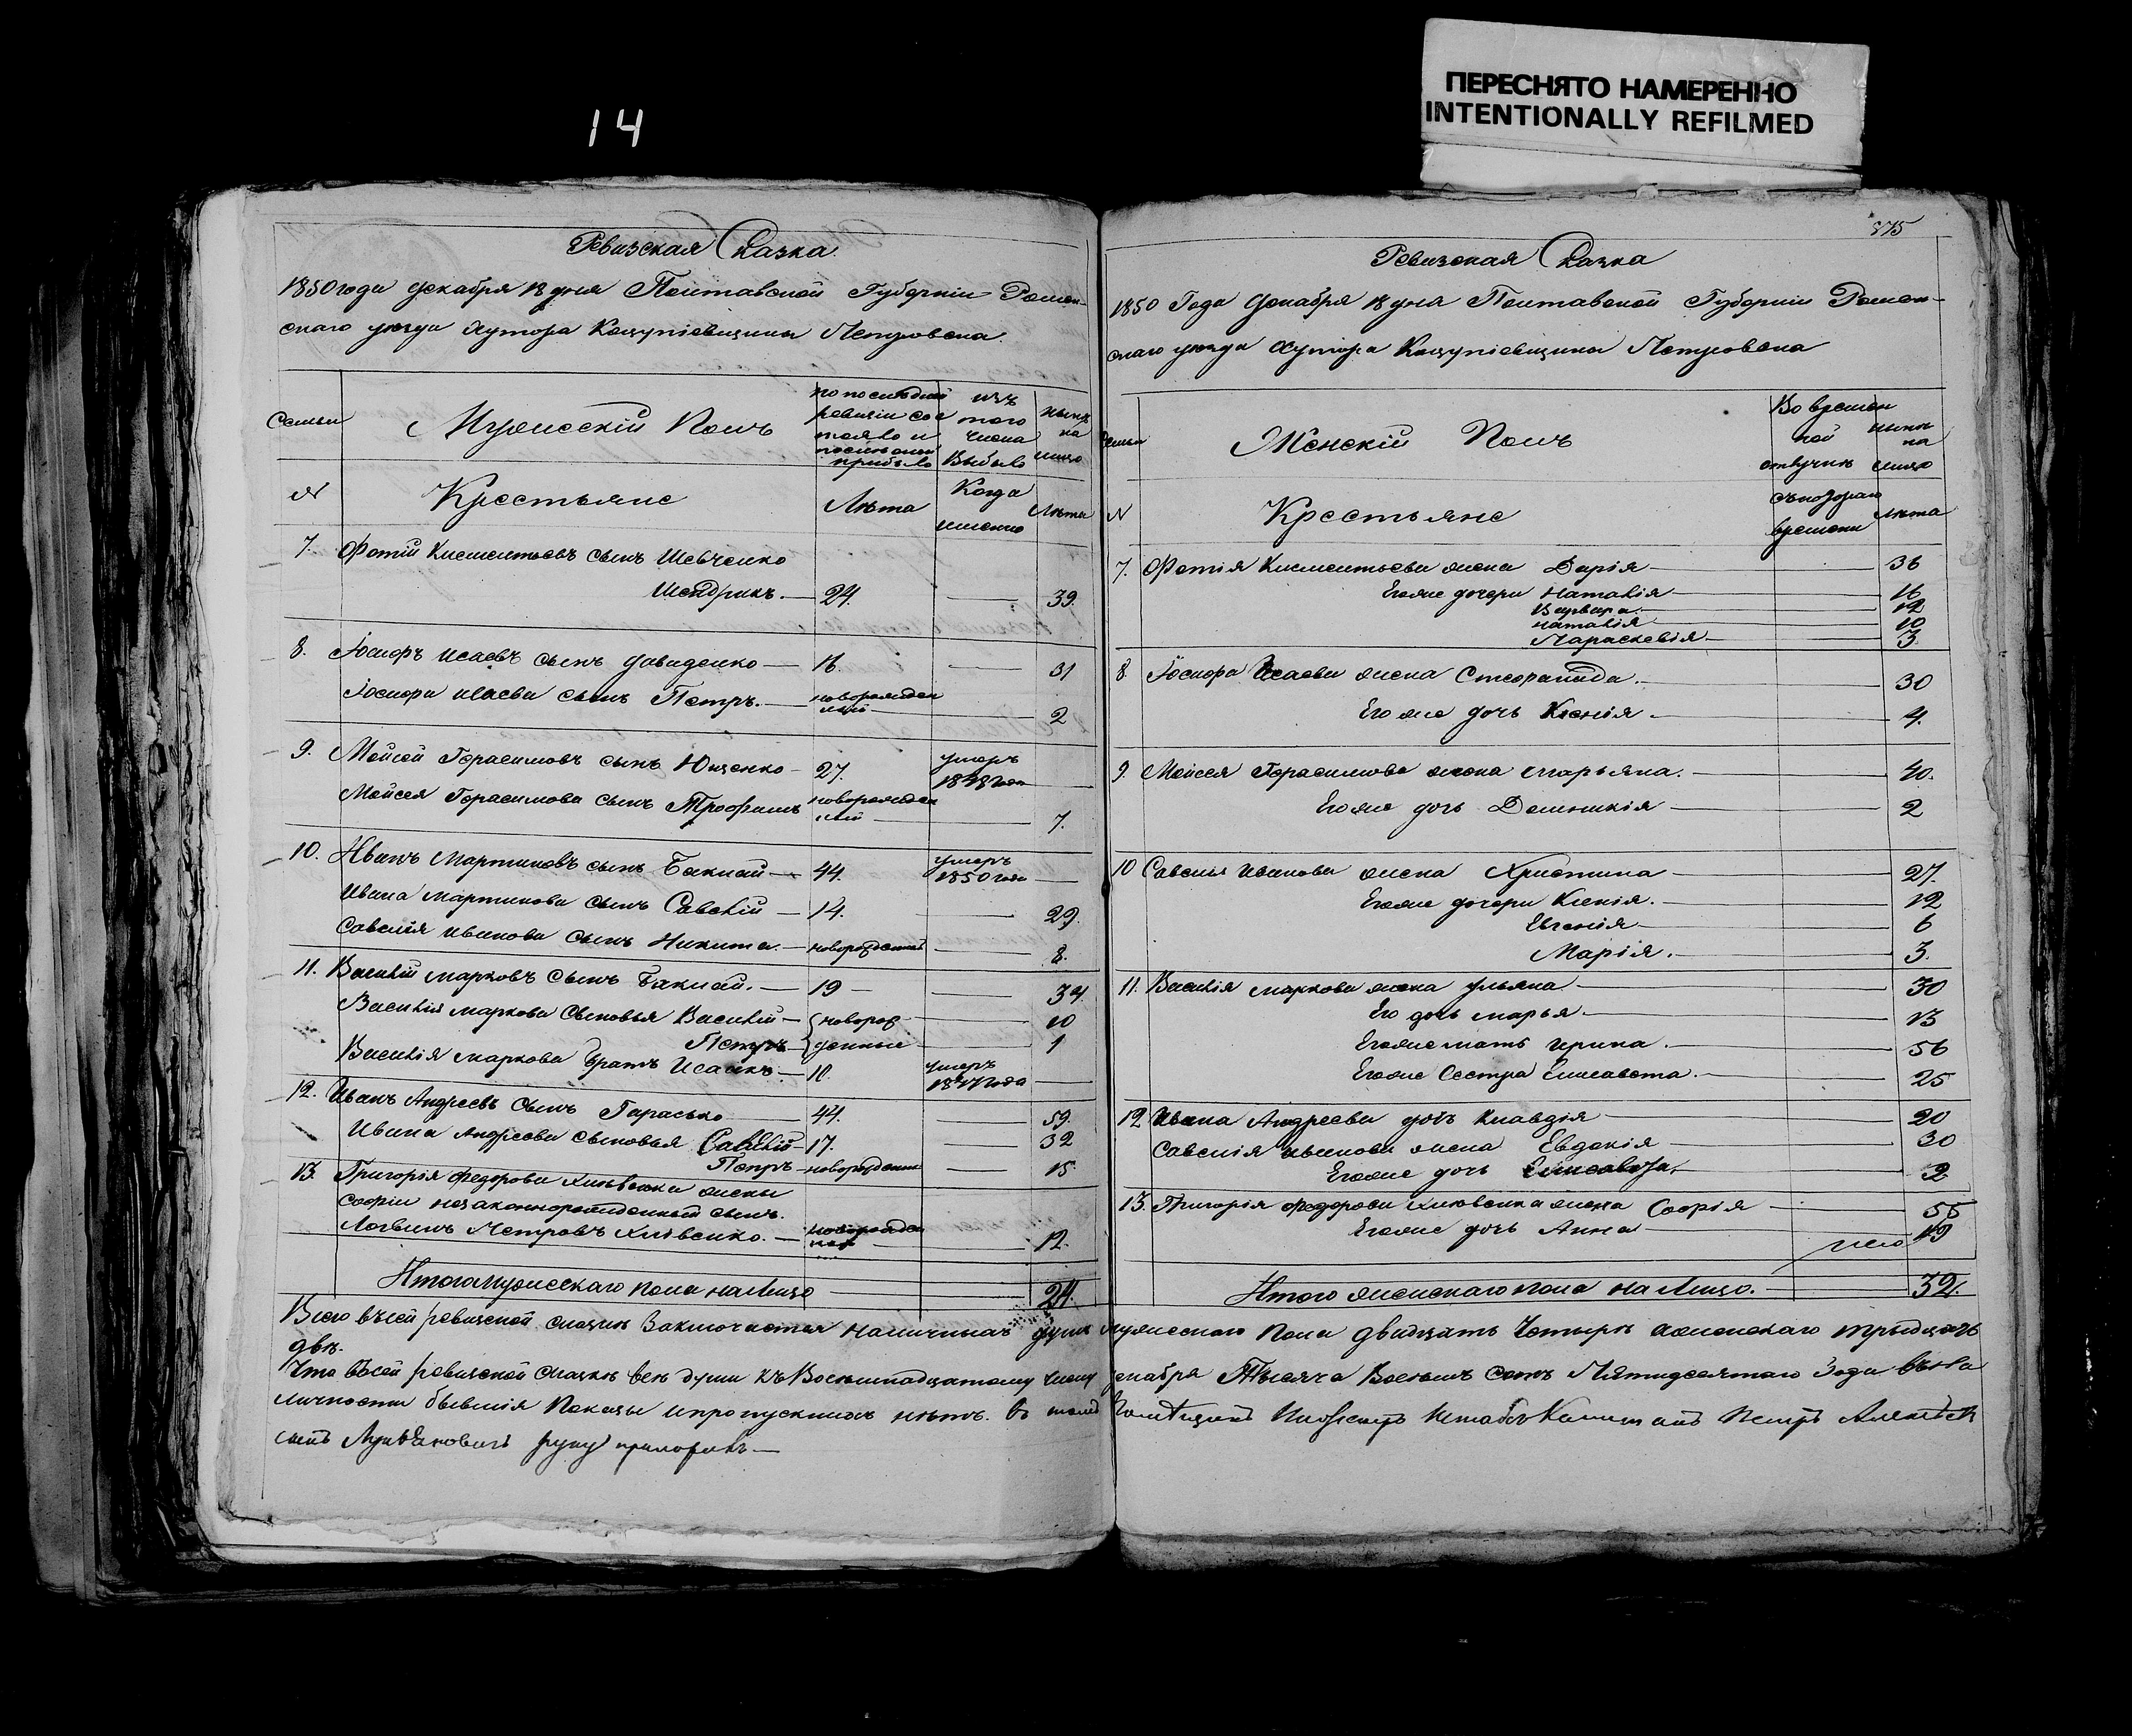 14
ПЕРЕСНЯТО НАМЕРЕННО
INTENTIONALLY REFILMED
Ревизская Сказка
1850 года декабря 18 дня Полтавской Губернiи Ромен-
скаго уезда Хутора Петровска
Семьи
Мужескiй Полъ
по последней ревизiи состояло и после оной прибыло
изъ того числа Выбыло
ныне на лицо
N
Крестьяне
Лета
Когда именно
Лета
7. Фотiй Климентьевъ сынъ Шевченко
24. 39.
8. Iосифъ Исаевъ сынъ Давиденко 16. 31
Iосифа Исаева сынъ Петръ. новорожденный 2
9. Мойсей Герасимовъ сынъ Ющенко 27. умеръ 1848 года
Мойсея Герасимова сынъ Трофимъ новорожденный 7.
10. Иванъ Мартиновъ сынъ Баклай 44. умеръ 1850 года
Ивана Мартинова сынъ Савелiй 14. 29.
Савелiя Иванова сынъ Никита. новорожденный 8.
11. Василiй Марковъ сынъ Баклай. 19 34
Василiя Маркова сыновья Василiй новорож 10
Петръ денные 1
Василiя Маркова братъ Исаакъ 11. умеръ 1847 года
12. Иванъ Андреевъ сынъ Гарасько 44. 59.
Ивана Андреева сыновья Савелiй 17. 32
Петръ новорожденный 15
13. Григорiя Федорова жены
Софiи незаконнорожденный сынъ.
Петровъ новорожденный 12.
Итого мужескаго пола на лицо 24.
375
Ревизская Сказка
1850 Года Декабря 18 дня Полтавской Губернiи Ромен-
скаго уезда Хутора Петровска
Семьи
Женскiй Полъ
Во временной отлучке
ныне на лицо
N
Крестьяне
съ котораго времени
Лета
7. Фотiя Климентьева жена Дарiя 36
Егоже дочери Наталiя 16
Варвара 12
Наталiя 10
Параскевiя 3.
8 Iосифа Исаева жена Стефанида. 30
Егоже дочь Ксенiя. 4.
9. Мойсея Герасимова жена Марьяна. 40.
Егоже дочь Домникiя 2
10 Савелiя Иванова жена Христина 27.
Егоже дочери Ксенiя. 12
Евгенiя 6
Марiя. 3.
11. Василiя Маркова жена Ульяна 30
Его дочь Марья 13
Егоже мать Ирина. 56
Егоже Сестра Елисавета. 25
12 Ивана Андреева дочь Клавдiя 20
Савелiя Иванова жена Евдокiя 30
Егоже дочь Елисавета. 2
13. Григорiя Федорова жена Софiя 55
Егоже дочь Анна 19
Итого женскаго пола на лицо. 32.
Всего въ сей ревизской сказке Заключается наличныхъ душъ мужескаго пола двадцать четыре женскаго тридцать
две.
Что въ сей ревизской сказке все души къ Восемнадцатому числу декабря Тысяча Восемь сотъ Пятидесятаго Года въ на
личности бывшiя Показаны и пропускныхъ нетъ. въ томъ Помещикъ Штабсъ Капитанъ Петръ Алексеев
руку приложилъ